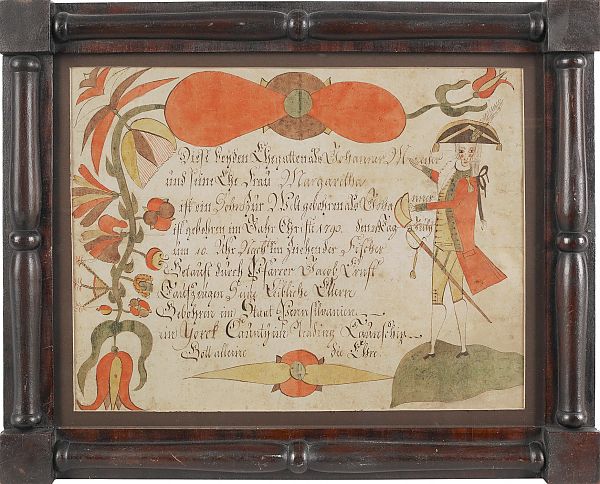 Diese beyden Ehegatten als Johannar
und seine Ehe Frau Margaretha
ist ein Sohn zur Welt gebohren als Joha nnes
ist gebohren im Jahr Christi 1790. den Tag
um 10. Uhr Nachts im Zeichender Fischer
Getauft durch Pfarrer Jacob Ernst
Taufzeugen Seine Leibliche Eltern
Gebohren im Staat Pennsilvanien
im Yorck County in Reading Taunschip
Gott alleine die Ehre